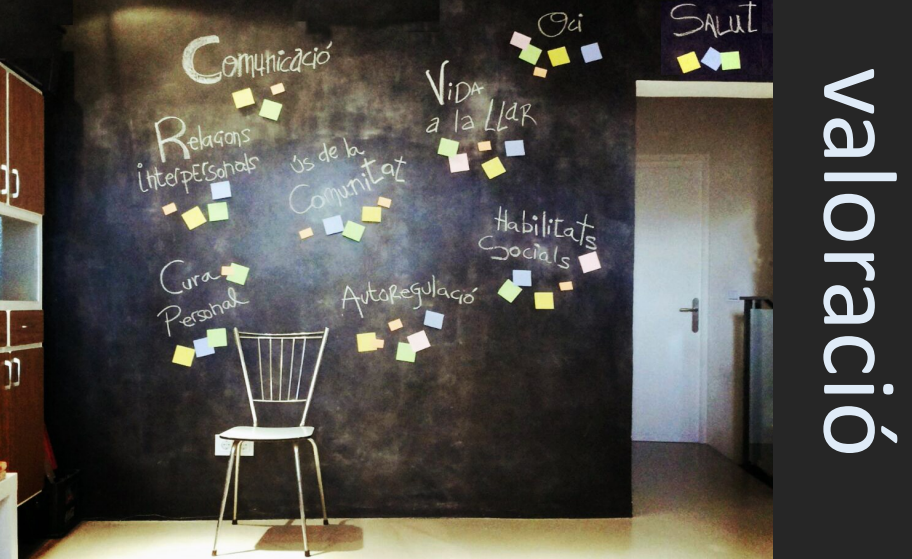 Comunicació
Oci
Salut
Vida
a la Llar
Relacions
interpersonals
ús de la
Comunitat
Habilitats
Socials
Cura
Personal
Autoregulació
valoració